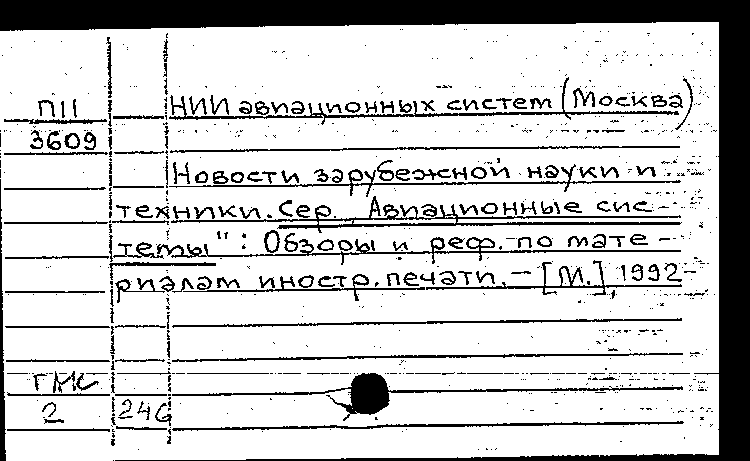 П11 НИИ авиационных систем (Москва)
3609
Новости зарубежной науки и
техники. Сер. "Авиационные сис-
темы": Обзоры и реф. по мате-
риалам иностр. печати. – [М.], 1992-
ГМК
2 246